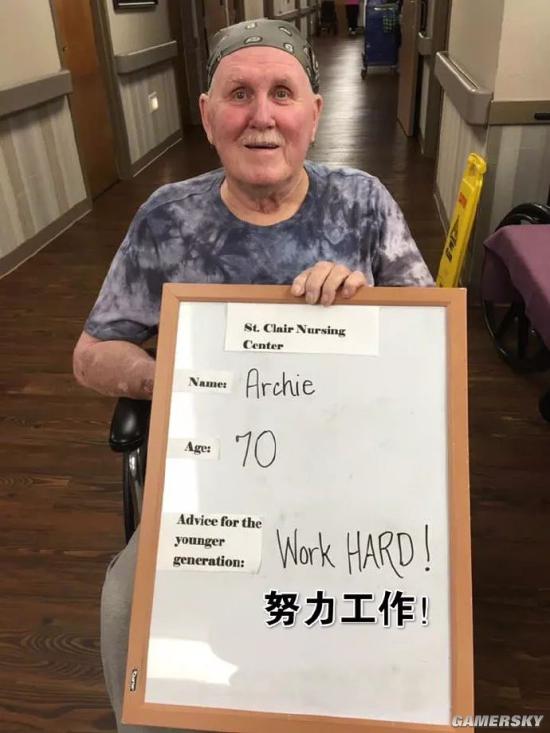 St. Clair Nursing
Center
Name: Archie
Age: 70
Advice for the
younger
generation:
Work HARD!
努力工作!
GAMERSKY